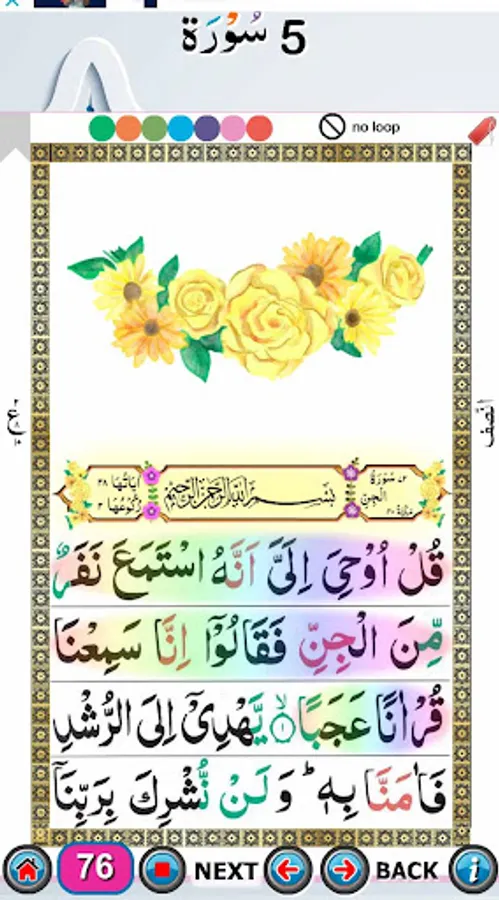 5 سُوْرَة
no loop
النّصف
ع
سُوْرَةُ الْجِنِّ
بِسْمِ اللّٰهِ الرَّحْمٰنِ الرَّحِيْمِ
اٰيَاتُهَا ٢٨
رُكُوْعُهَا ٢
قُلْ اُوْحِىَ اِلَىَّ اَنَّهُ اسْتَمَعَ نَفَرٌ
مِّنَ الْجِنِّ فَقَالُوْۤا اِنَّا سَمِعْنَا
قُرْاٰنًا عَجَبًا ۙ‏﴿۱﴾ يَّهْدِىْۤ اِلَى الرُّشْدِ
فَاٰمَنَّا بِهٖ‌ ؕ وَلَنْ نُّشْرِكَ بِرَبِّنَاۤ
76
NEXT
BACK
i